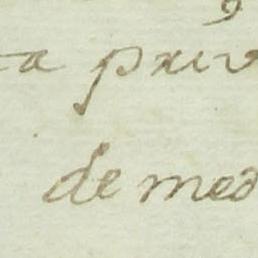 a priv
de med